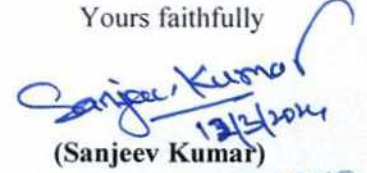 Yours faithfully
Sanjeev Kumar
12/3/2024
(Sanjeev Kumar)